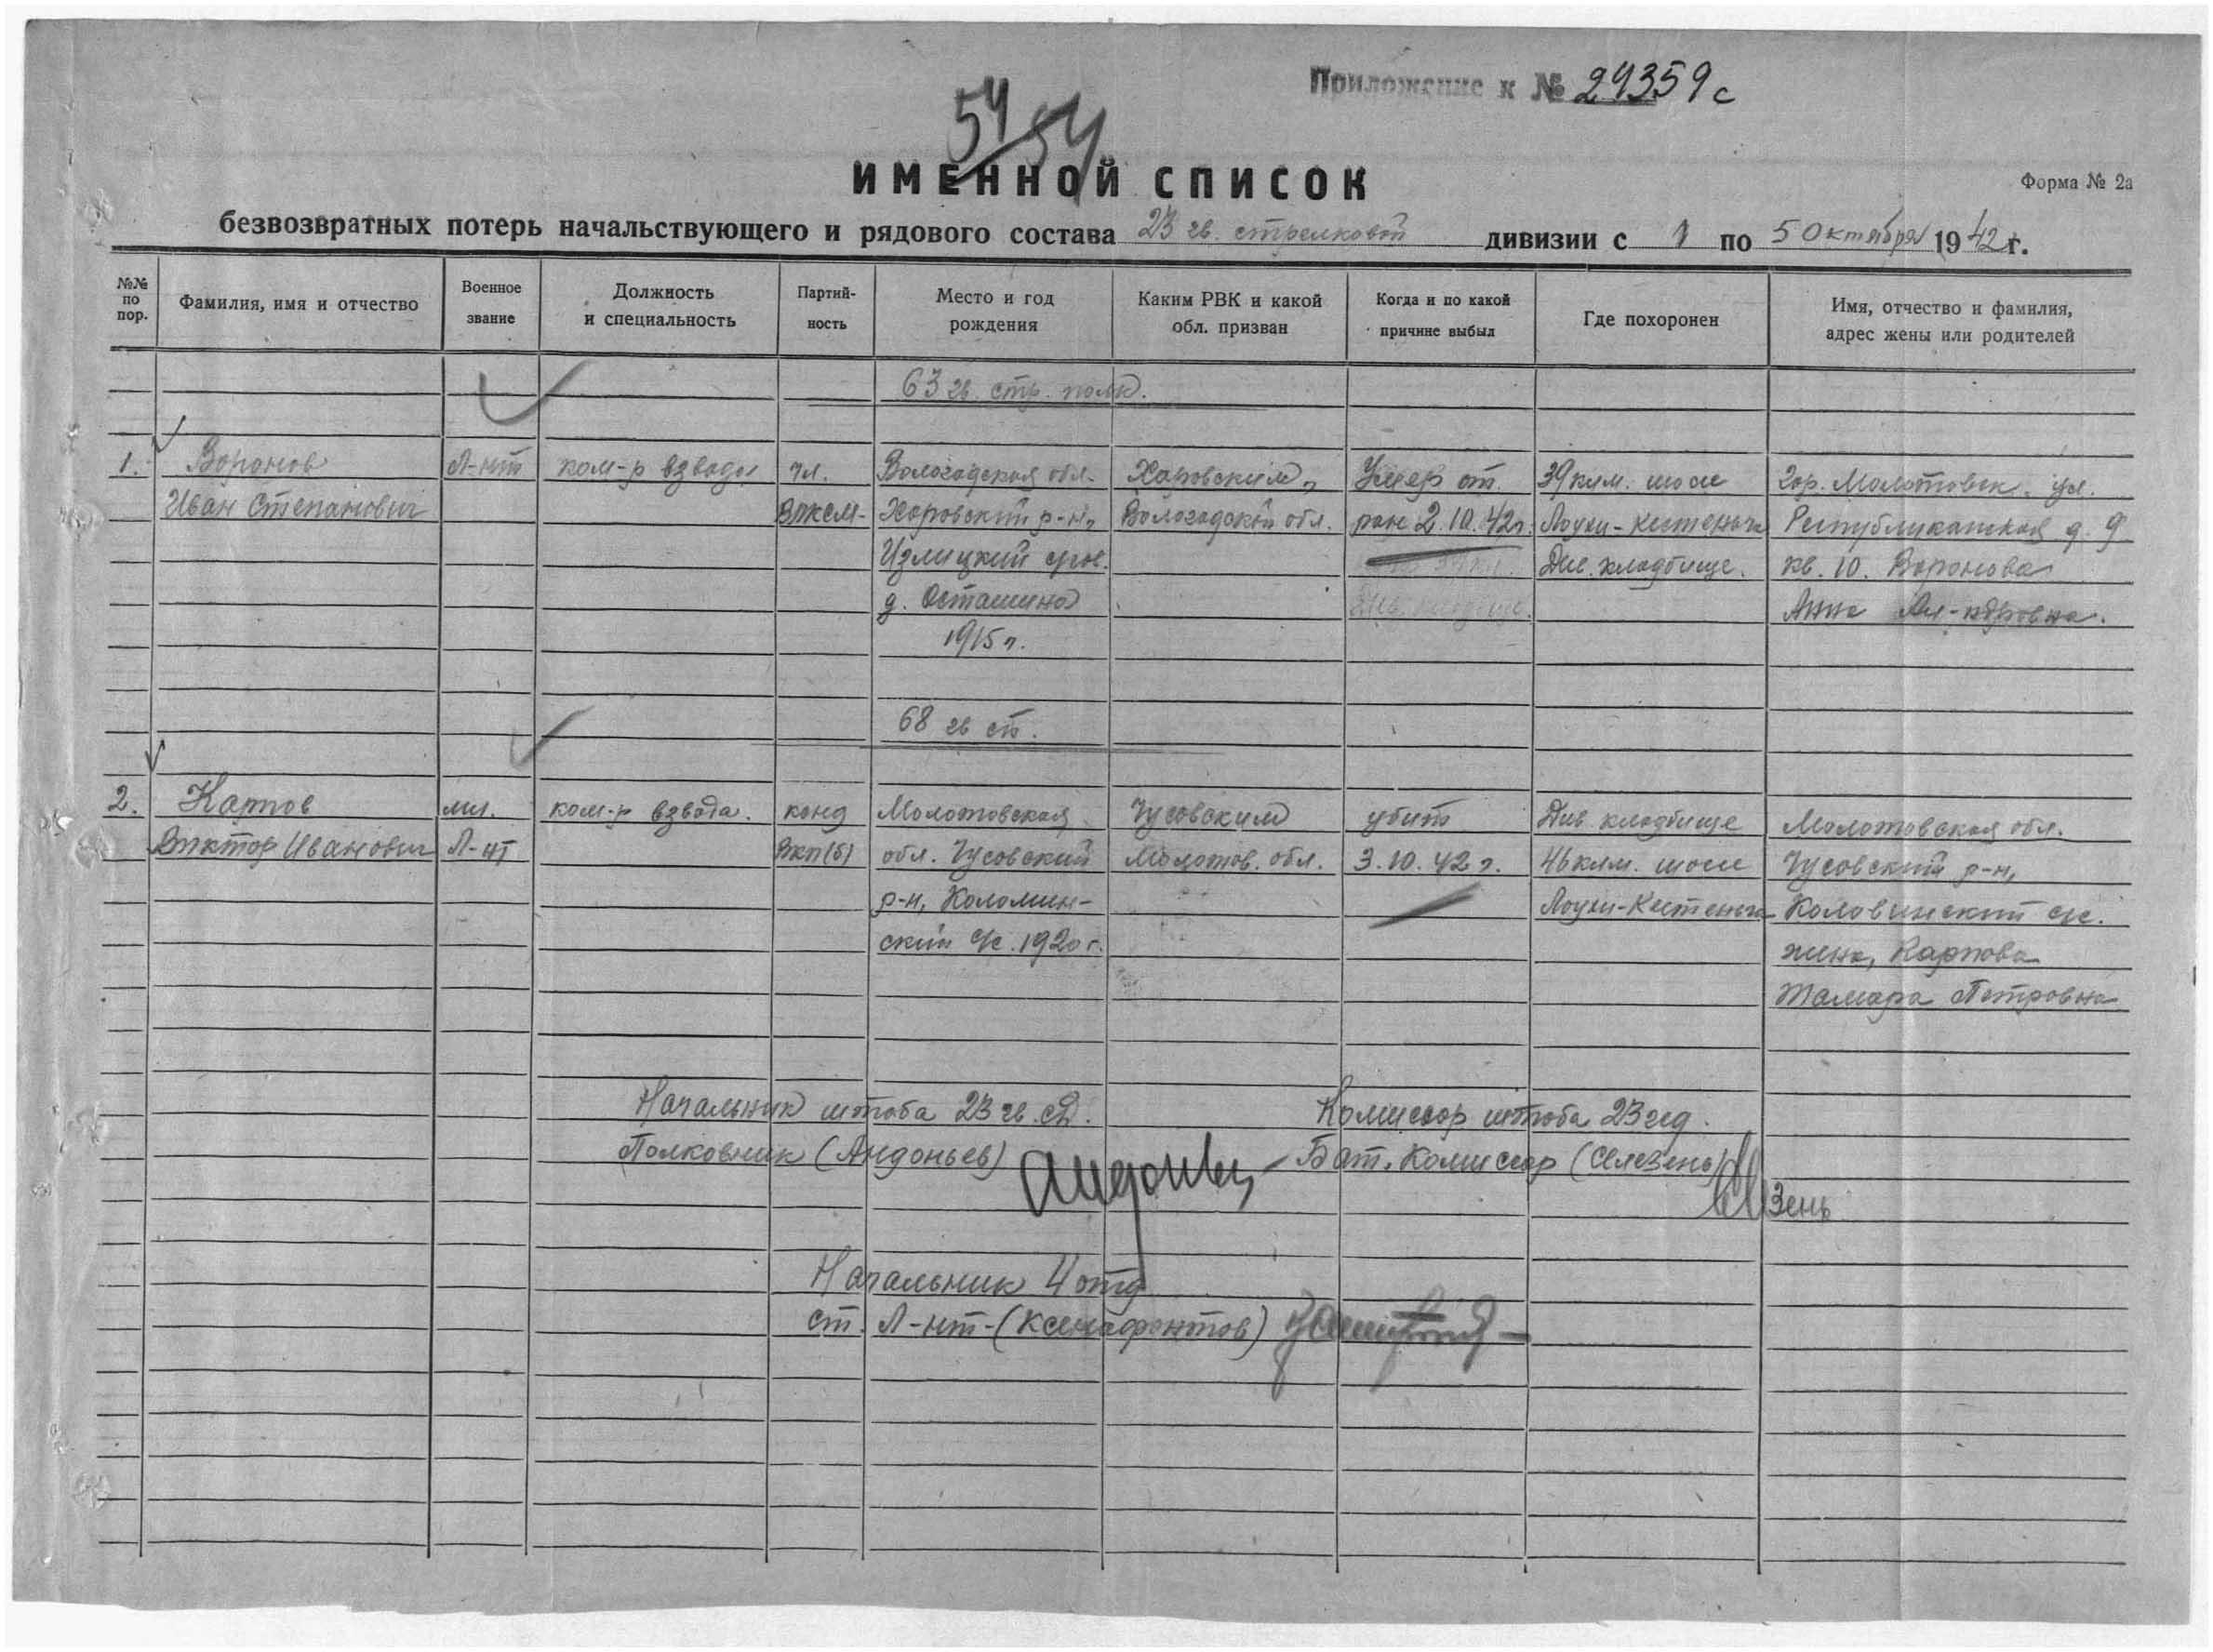 Приложение к № 24359с
54
54
ИМЕННОЙ СПИСОК
Форма № 2а
безвозвратных потерь начальствующего и рядового состава 23 гв. стрелковой дивизии с 1 по 5 Октября 1942 г.
№№ по пор.
Фамилия, имя и отчество
Военное звание
Должность и специальность
Партийность
Место и год рождения
Каким РВК и какой обл. призван
Когда и по какой причине выбыл
Где похоронен
Имя, отчество и фамилия, адрес жены или родителей
63 гв. стр. полк.
1. Воронов Л-нт ком-р взвода чл. Вологодская обл. Харовским, Умер от 39 клм. шоссе Гор. Молотовск. ул.
Иван Степанович ВЛКСМ- Харовский р-н, Вологодской обл. ран 2.10.42г. Лоухи-Кестеньга Республиканская д. 9
с/сов. Див. кладбище. кв. 10. Воронова
д. Осташино Див. кладбище. Анна Ал-ндровна.
1915 г.
68 гв сп.
2. Карпов мл. ком-р взвода. канд Молотовская Чусовским убит Див. кладбище Молотовская обл.
Виктор Иванович Л-нт ВКП(б) обл. Чусовский Молотов. обл. 3.10.42 г. 46 клм. шоссе Чусовский р-н,
р-н, Коломин- Лоухи-Кестеньга Каловинский с/с.
ский с/с. 1920 г. жена, Карпова
Тамара Петровна
Начальник штаба 23 гв. сд. Комиссар штаба 23 гсд.
Полковник (Андоньев) Андоньев Бат. Комиссар (Селезень)
Селезень
Начальник 4 отд
ст. Л-нт-(Ксенофонтов)